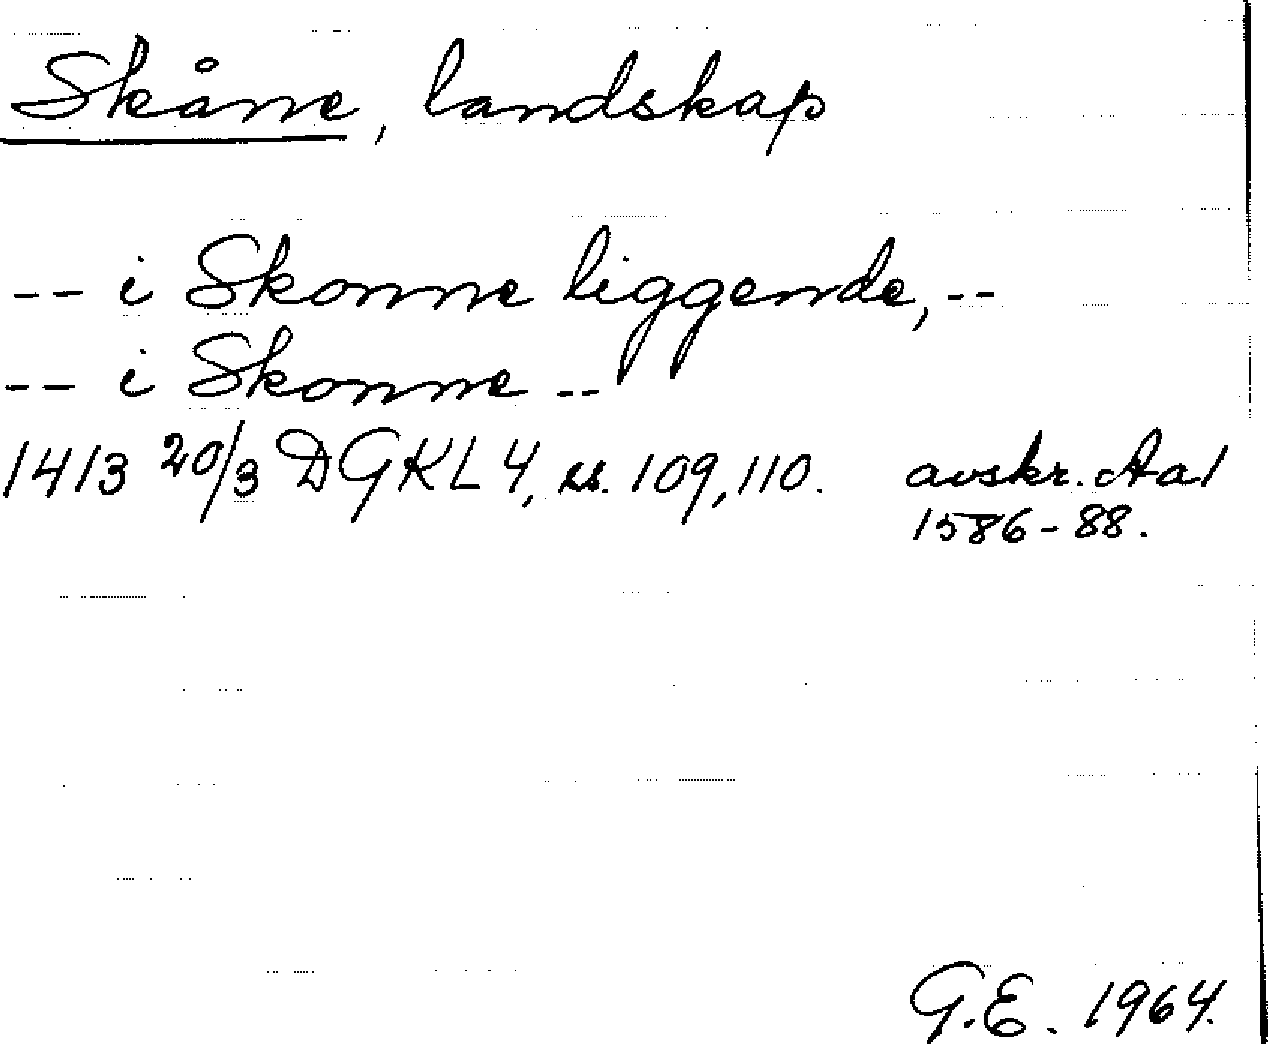 Skåne, landskap
-- i Skonne liggende, --
-- i Skonne --
1413 20/3 DGKL 4, ss. 109, 110. avskr. Aa 1
1586-88.
G.E. 1964.